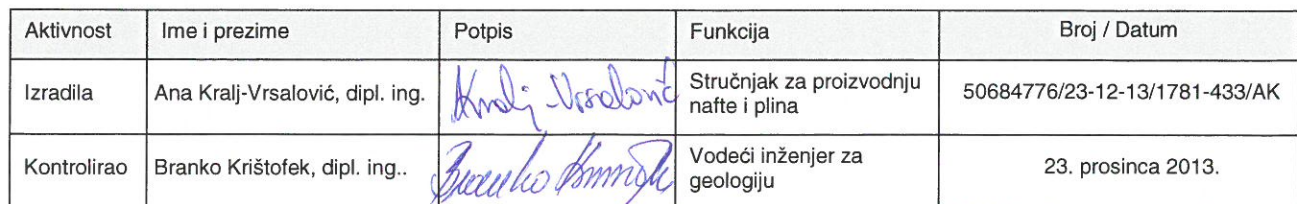 Aktivnost Ime i prezime Potpis Funkcija Broj / Datum
Izradila Ana Kralj-Vrsalović, dipl. ing. Kralj-Vrsalović Stručnjak za proizvodnju nafte i plina 50684776/23-12-13/1781-433/AK
Kontrolirao Branko Krištofek, dipl. ing.. Branko Vodeći inženjer za geologiju 23. prosinca 2013.